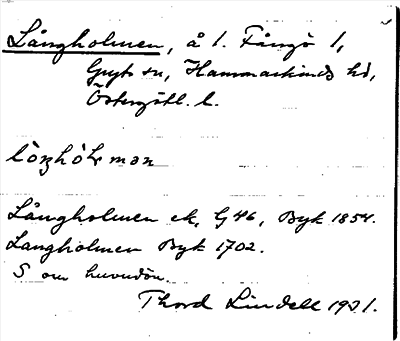 Långholmen, å l. Fångö 1,
Gryts sn, Hammarkinds hd,
Östergötl. l.
Långholmen ek. G 46, Byk 1854.
Langholmen Byk 1702.
S om huvudön.
Thord Lindell 1931.